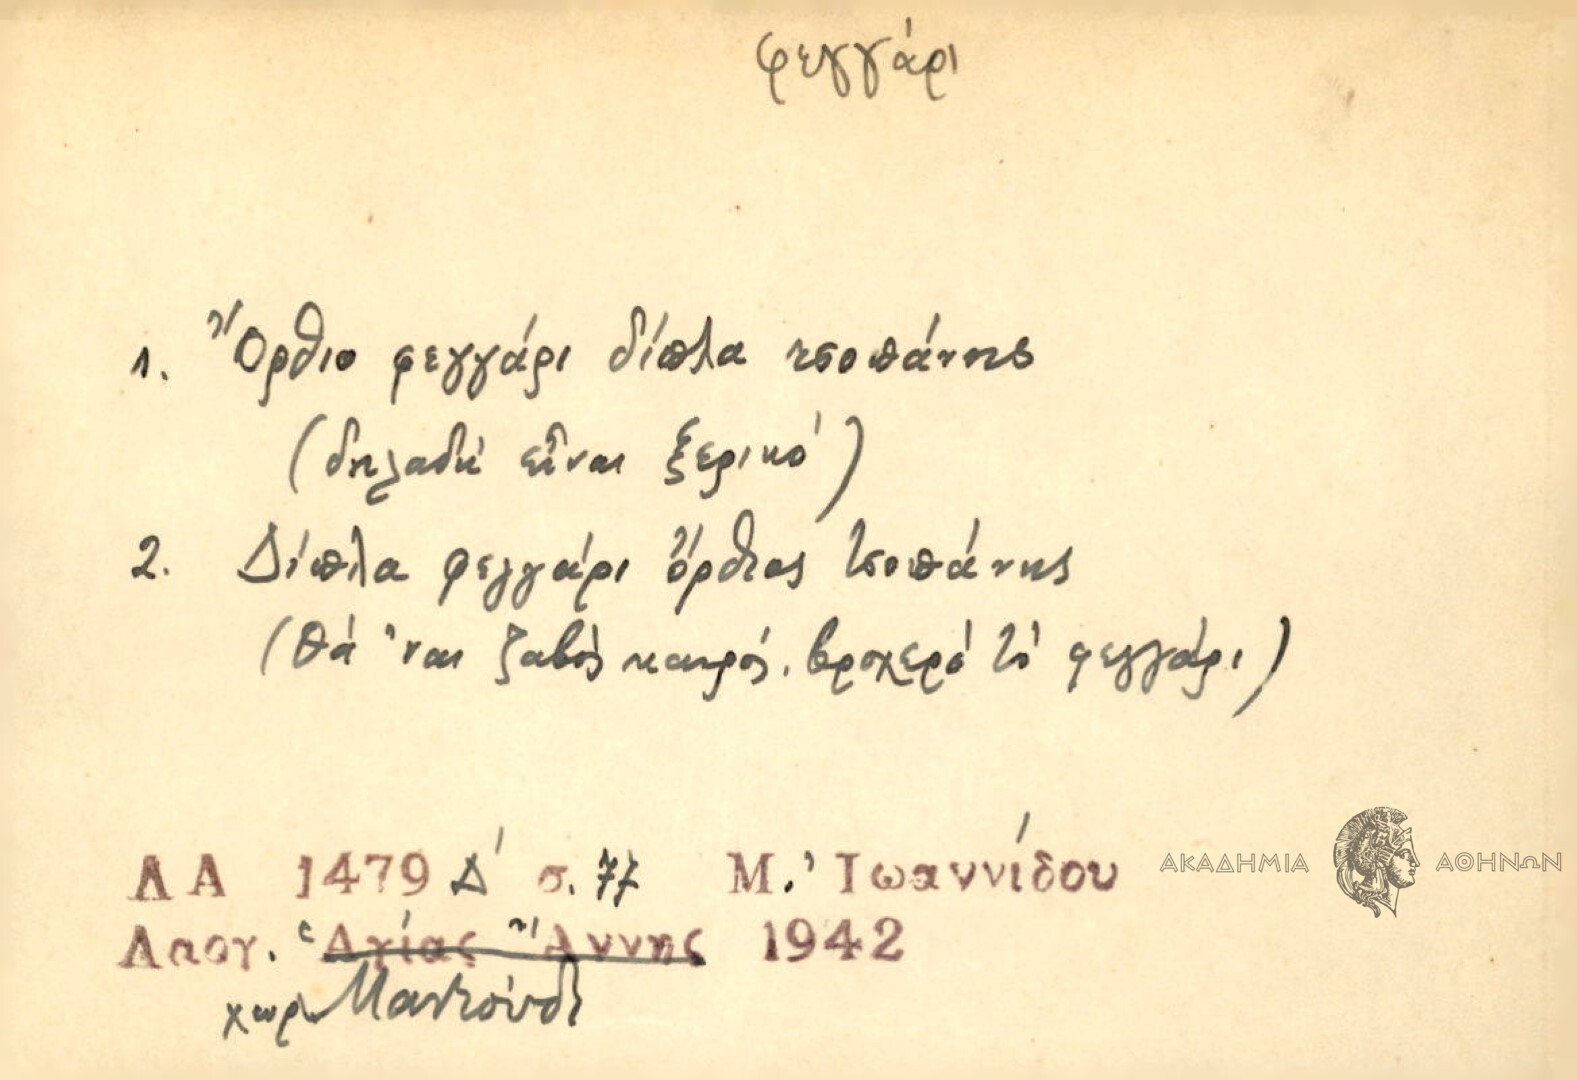 φεγγάρι
1. Ὄρθιο φεγγάρι δίπλα τσοπάνης
(δηλαδή εἶναι ξερικό)
2. Δίπλα φεγγάρι ὄρθιος τσοπάνης
(Θά 'ναι ζαβός καιρός. βροχερό τό φεγγάρι)
ΛΑ 1479 Δ' σ. 77 Μ. Ἰωαννίδου
ΑΚΑΔΗΜΙΑ ΑΘΗΝΩΝ
Λαογ. Ἁγίας Ἄννης 1942
χωρ. Μαντούδι